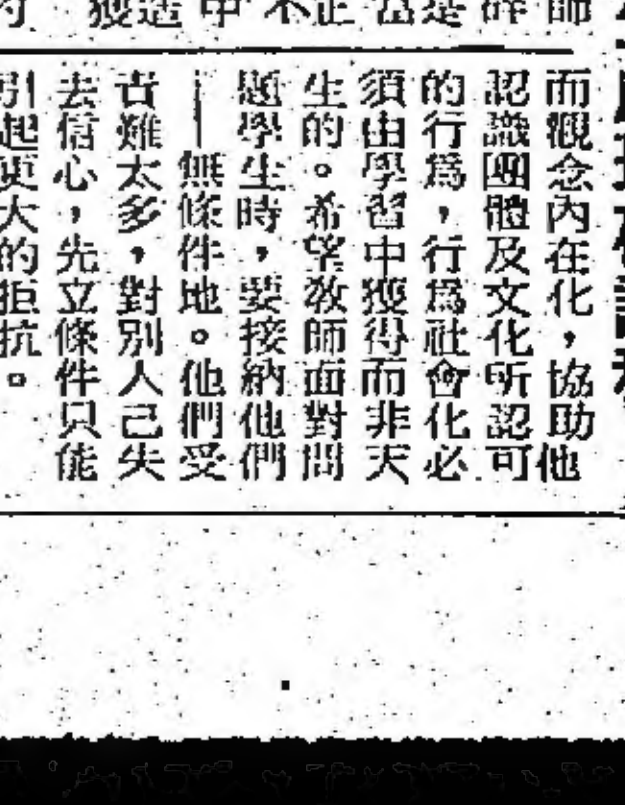 而觀念內在化，協助他
認識團體及文化所認可
的行爲，行爲社會化必
須由學習中獲得而非天
生的。希望教師面對問
題學生時，要接納他們
——無條件地。他們受
責難太多，對別人己失
去信心，先立條件只能
引起更大的拒抗。